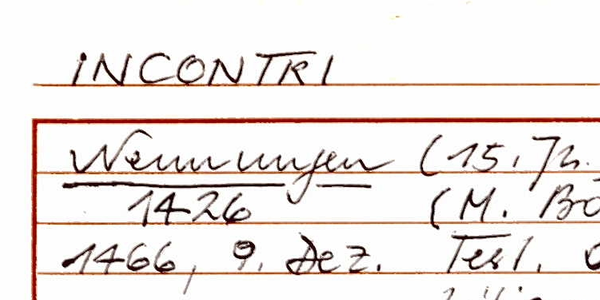 INCONTRI
Nennungen (15. Jh.
1426 (M. Bo
1466, 9. Dez. Test.